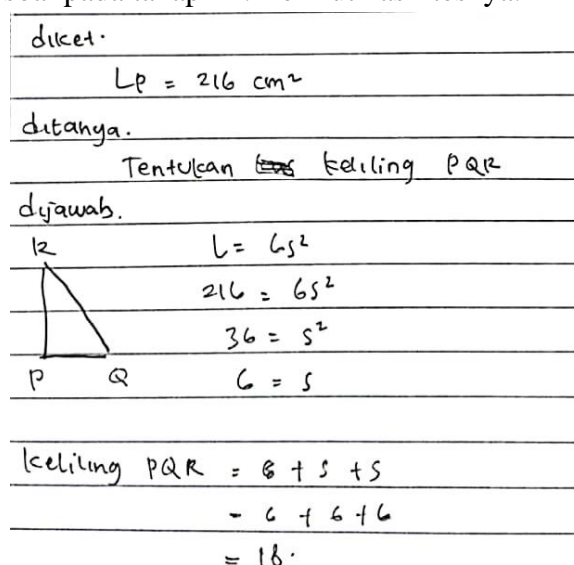 diket.
Lp = 216 cm²
ditanya.
Tentukan keliling PQR
dijawab.
R
P Q
L = 6s²
216 = 6s²
36 = s²
6 = s
keliling PQR = s + s + s
= 6 + 6 + 6
= 18.